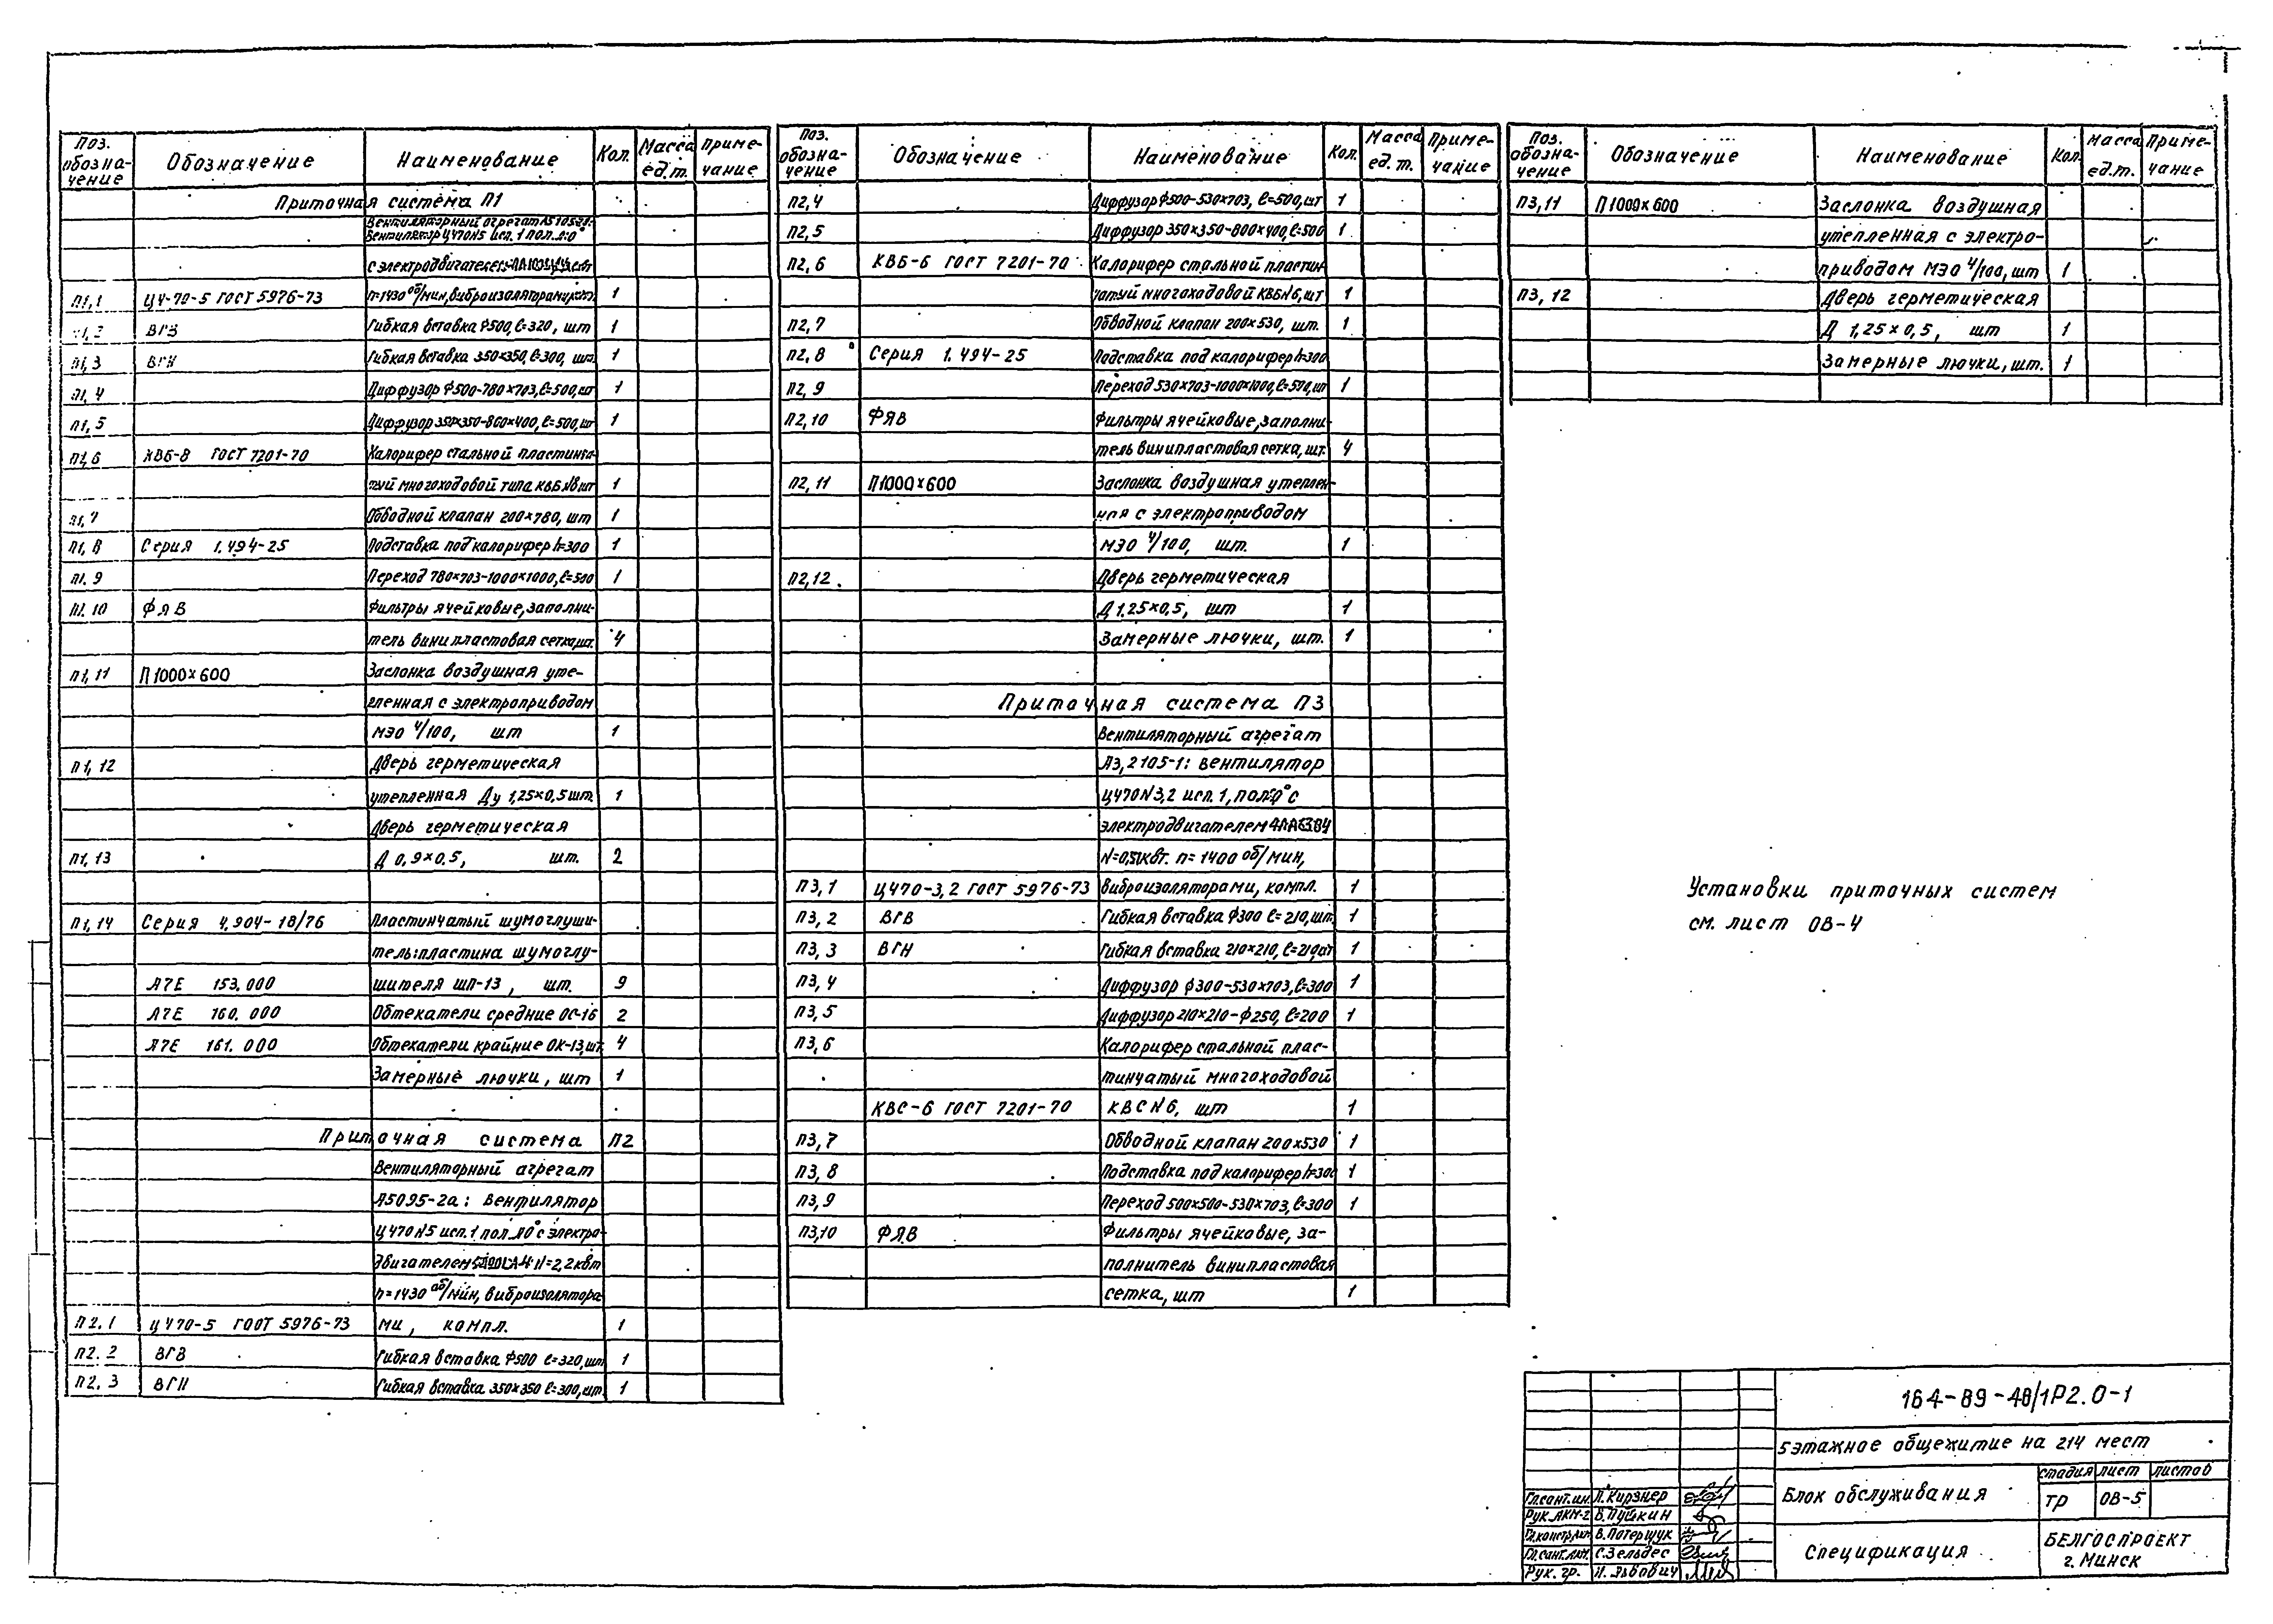 Поз. обозна-чение | Обозначение | Наименование | Кол. | Масса ед.т. | Приме-чание
Приточная система П1
Вентиляторный агрегат
Вентилятор Ц470N5 исп. 1 пол.
с электродвигателем
П1,1 | Ц4-70-5 ГОСТ 5976-73 | n=1430 об/мин, | 1
П1,2 | ВГВ | Гибкая вставка ф500, ℓ=320, шт | 1
П1,3 | ВГН | Гибкая вставка 350×350, ℓ=300, шт. | 1
П1,4 | Диффузор ф500-780×703, ℓ=500, шт | 1
П1,5 | Диффузор 350×350-800×400, ℓ=500, шт | 1
П1,6 | КВБ-8 ГОСТ 7201-70 | Калорифер стальной пластинча-
тый многоходовой типа КВБ N8 шт | 1
П1,7 | Обводной клапан 200×780, шт | 1
П1,8 | Серия 1.494-25 | Подставка под калорифер h=300 | 1
П1.9 | Переход 780×703-1000×1000, ℓ=500 | 1
П1.10 | ФЯВ | Фильтры ячейковые, заполни-
тель винипластовая сетка шт. | 4
П1,11 | П1000×600 | Заслонка воздушная уте-
пленная с электроприводом
МЭО 4/100, шт | 1
П1,12 | Дверь герметическая
утепленная Ду 1,25×0,5 шт. | 1
Дверь герметическая
П1,13 | Д 0,9×0,5, шт. | 2
П1,14 | Серия 4.904-18/76 | Пластинчатый шумоглуши-
тель:пластина шумоглу-
А7Е 153.000 | шителя ШП-13, шт. | 9
А7Е 160.000 | Обтекатели средние ОС-16 | 2
А7Е 161.000 | Обтекатели крайние ОК-13, шт. | 4
Замерные лючки, шт | 1
Приточная система П2
Вентиляторный агрегат
А5095-2а: вентилятор
Ц470N5 исп. 1 пол. Л0° с электро-
двигателем N=2,2квт
n=1430 об/мин, виброизолятора-
П2.1 | Ц470-5 ГОСТ 5976-73 | ми, компл. | 1
П2.2 | ВГВ | Гибкая вставка ф500 ℓ=320, шт | 1
П2.3 | ВГН | Гибкая вставка 350×350 ℓ=300, шт. | 1
Поз. обозна-чение | Обозначение | Наименование | Кол. | Масса ед.т. | Приме-чание
П2,4 | Диффузор ф500-530×703, ℓ=500, шт | 1
П2,5 | Диффузор 350×350-800×400, ℓ=500 | 1
П2,6 | КВБ-6 ГОСТ 7201-70 | Калорифер стальной пластин-
чатый многоходовой КВБN6, шт | 1
П2,7 | Обводной клапан 200×530, шт. | 1
П2,8 | Серия 1.494-25 | Подставка под калорифер h=300
П2,9 | Переход 530×703-1000×1000, ℓ=500, шт | 1
П2,10 | ФЯВ | Фильтры ячейковые, заполни-
тель винипластовая сетка, шт. | 4
П2,11 | П1000×600 | Заслонка воздушная утеплен-
ная с электроприводом
МЭО 4/100, шт. | 1
П2,12 | Дверь герметическая
Д 1,25×0,5, шт | 1
Замерные лючки, шт. | 1
Приточная система П3
Вентиляторный агрегат
А3,2105-1: вентилятор
Ц470N3,2 исп. 1, пол. с
электродвигателем
n=1400 об/мин,
П3,1 | Ц470-3,2 ГОСТ 5976-73 | виброизоляторами, компл. | 1
П3,2 | ВГВ | Гибкая вставка ф300 ℓ=210, шт. | 1
П3,3 | ВГН | Гибкая вставка 210×210, ℓ=210, шт | 1
П3,4 | Диффузор ф300-530×703, ℓ=300 | 1
П3,5 | Диффузор 210×210-ф250, ℓ=200 | 1
П3,6 | Калорифер стальной плас-
тинчатый многоходовой
КВС-6 ГОСТ 7201-70 | КВС N6, шт | 1
П3,7 | Обводной клапан 200×530 | 1
П3,8 | Подставка под калорифер h=300 | 1
П3,9 | Переход 500×500-530×703, ℓ=300 | 1
П3,10 | ФЯВ | Фильтры ячейковые, за-
полнитель винипластовая
сетка, шт | 1
Поз. обозна-чение | Обозначение | Наименование | Кол. | Масса ед.т. | Приме-чание
П3,11 | П1000×600 | Заслонка воздушная
утепленная с электро-
приводом МЭО 4/100, шт | 1
П3,12 | Дверь герметическая
Д 1,25×0,5, шт | 1
Замерные лючки, шт. | 1
Установки приточных систем
см. лист ОВ-4
164-89-48/1Р2.0-1
5этажное общежитие на 214 мест
Блок обслуживания
стадия | лист | листов
ТР | ОВ-5
Спецификация
БЕЛГОСПРОЕКТ
г. Минск
Гл.сант.ин. Л.Кирзнер
Рук.АКМ-2 Б.Пушкин
В.Потерщук
Гл.сант.АКМ. С.Зельдес
Рук. гр. Н.Львович